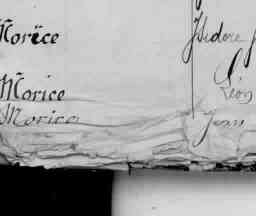 Morice Isidore
Morice Léon
Morice Jean